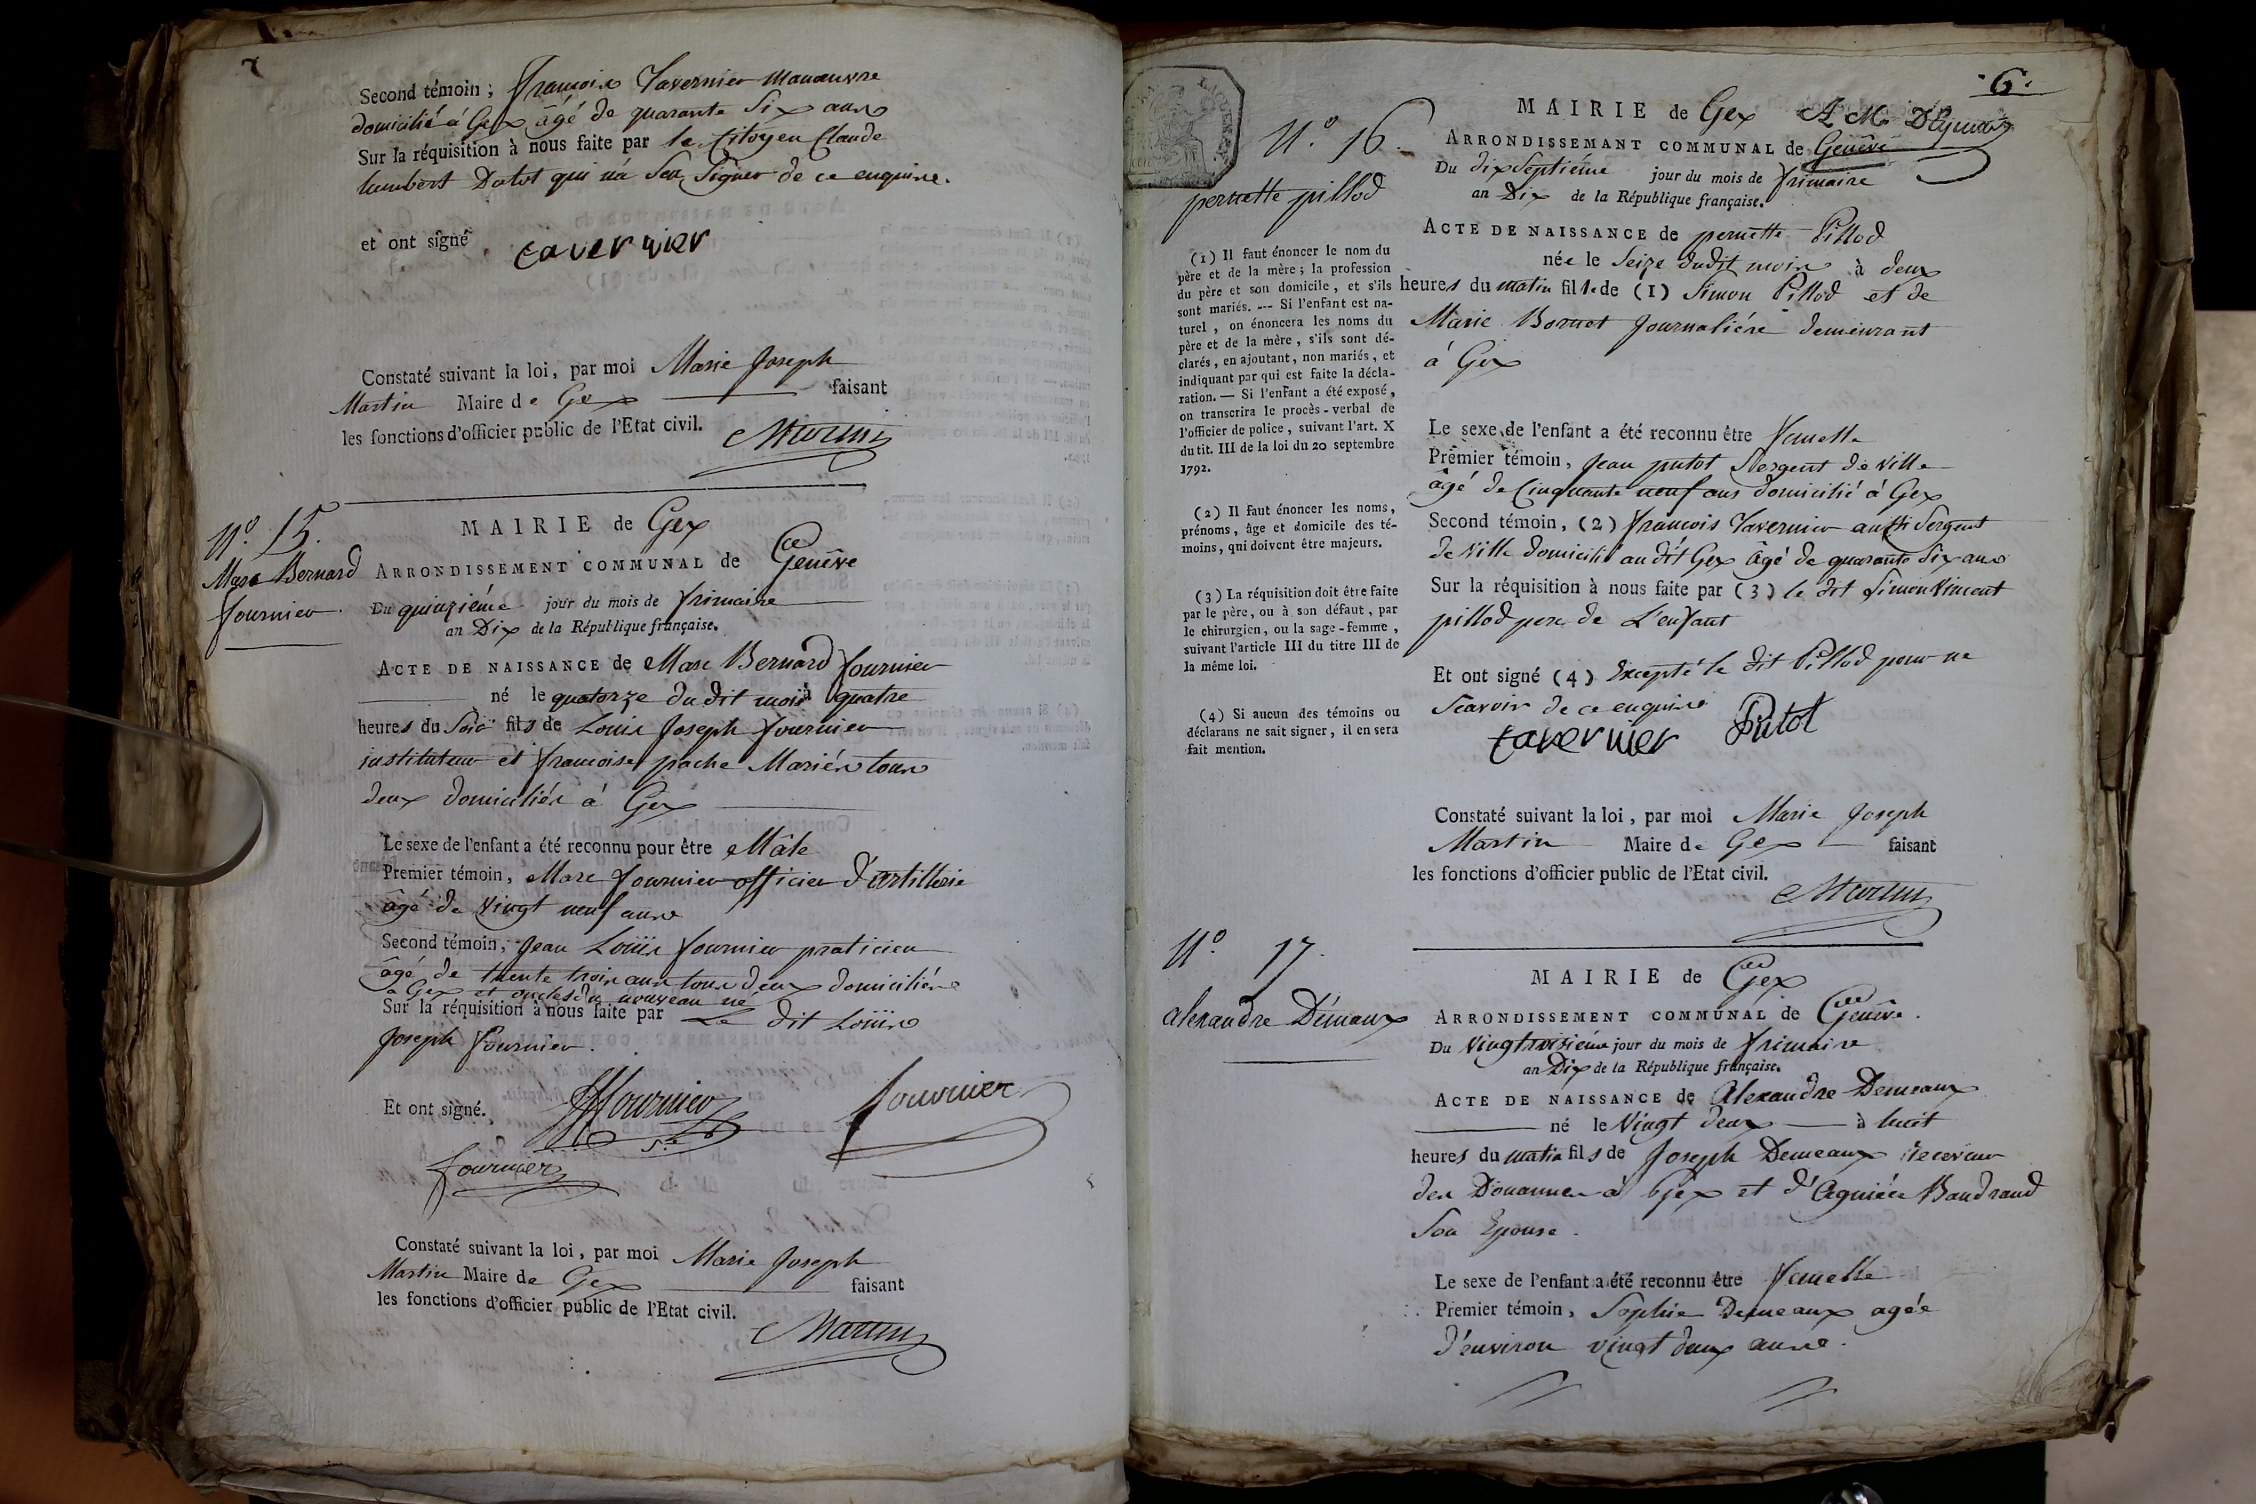 Second témoin ; francois Tavernier Manœuvre
domicilié á Gex âgé de quarante Six ans
Sur la réquisition à nous faite par le Citoyen Claude
lambert Datot qui n'á Scu Signer de ce enquine.
et ont signé
tavernier
Constaté suivant la loi, par moi Marie Joseph
Martin Maire de Gex faisant
les fonctions d'officier public de l'Etat civil. Martin
N.º 15.
Marc Bernard
fournier.
MAIRIE de Gex
ARRONDISSEMENT COMMUNAL de Genêve
Du quinziéme jour du mois de frimaire
an Dix de la République française.
ACTE DE NAISSANCE de Marc Bernard fournier
né le quatorze du dit mois à quatre
heures du Soir fils de Louis Joseph fournier
instituteur et francoise pache Mariés tous
deux domiciliés á Gex
Le sexe de l'enfant a été reconnu pour être Mâle
Premier témoin, Marc fournier officier d'artillerie
âgé de Vingt neuf ans
Second témoin, Jean Louïs fournier praticien
âgé de trente trois ans tous deux domiciliés
a Gex et oncles du nouveau né
Sur la réquisition à nous faite par Le dit Louïs
Joseph fournier.
Et ont signé. fournier fournier
fournier
Constaté suivant la loi, par moi Marie Joseph
Martin Maire de Gex faisant
les fonctions d'officier public de l'Etat civil.
Martin
6.
N.º 16.
pernette pillod
(1) Il faut énoncer le nom du
père et de la mère ; la profession
du père et son domicile, et s'ils
sont mariés. --- Si l'enfant est na-
turel, on énoncera les noms du
père et de la mère, s'ils sont dé-
clarés, en ajoutant, non mariés, et
indiquant par qui est faite la décla-
ration. — Si l'enfant a été exposé,
on transcrira le procès-verbal de
l'officier de police, suivant l'art. X
du tit. III de la loi du 20 septembre
1792.
(2) Il faut énoncer les noms,
prénoms, âge et domicile des té-
moins, qui doivent être majeurs.
(3) La réquisition doit être faite
par le père, ou à son défaut, par
le chirurgien, ou la sage-femme,
suivant l'article III du titre III de
la même loi.
(4) Si aucun des témoins ou
déclarans ne sait signer, il en sera
fait mention.
MAIRIE de Gex
ARRONDISSEMANT COMMUNAL de Genêve
Du dix Septiéme jour du mois de frimaire
an Dix de la République française.
ACTE DE NAISSANCE de pernette Pillod
née le Seize dudit mois à deux
heures du matin fille de (1) Simon Pillod et de
Marie Bornet Journaliére demeurant
á Gex
Le sexe de l'enfant a été reconnu être femelle
Premier témoin, Jean putot Sergent de ville
âgé de Cinquante neuf ans domicilié á Gex
Second témoin, (2) francois Tavernier aussi Sergent
de Ville domicilié au dit Gex âgé de quarante Six ans
Sur la réquisition à nous faite par (3) le dit Simon Vincent
pillod pere de L'enfant
Et ont signé (4) Excepté le dit Pillod pour ne
Scavoir de ce enquis
tavernier Putot
Constaté suivant la loi, par moi Marie Joseph
Martin Maire de Gex faisant
les fonctions d'officier public de l'Etat civil.
Martin
N.º 17.
alexandre Démaux
MAIRIE de Gex
ARRONDISSEMENT COMMUNAL de Genêve.
Du Vingt troisiéme jour du mois de frimaire
an Dix de la République française.
ACTE DE NAISSANCE de Alexandre Demeaux
né le Vingt deux à huit
heures du matin fils de Joseph Demeaux Receveur
des Douannes á Gex et d'Agniése Baudraud
Son Epouse.
Le sexe de l'enfant a été reconnu être femelle
Premier témoin, Sophie Demeaux agée
d'environ vingt deux anné.